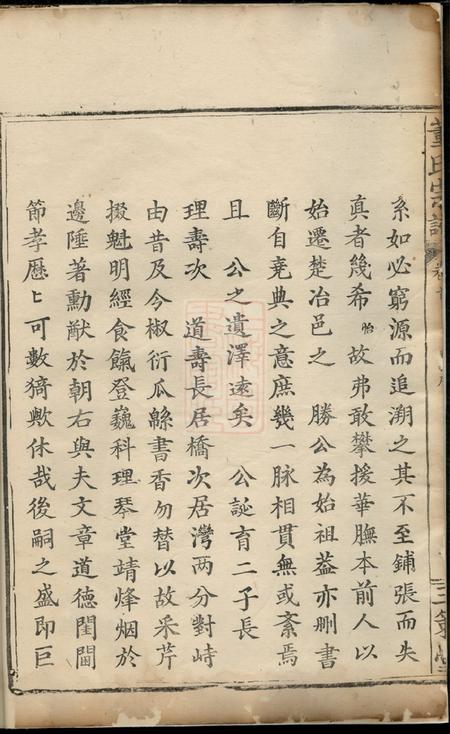 系如必窮源而追溯之其不至鋪張而失
真者幾希 故弗敢攀援華膴本前人以
始遷楚冶邑之 勝公為始祖葢亦刪書
斷自堯典之意庶幾一脉相貫無或紊焉
且 公之遺澤遠矣 公誕育二子長
理壽次 道壽長居橋次居灣两分對峙
由昔及今椒衍瓜緜書香勿替以故采芹
掇魁明經食餼登巍科理琴堂靖烽烟於
邊陲著勳猷於朝右與夫文章道德閨閫
節孝歷〻可數猗歟休哉後嗣之盛即巨
董氏宗譜
三策堂